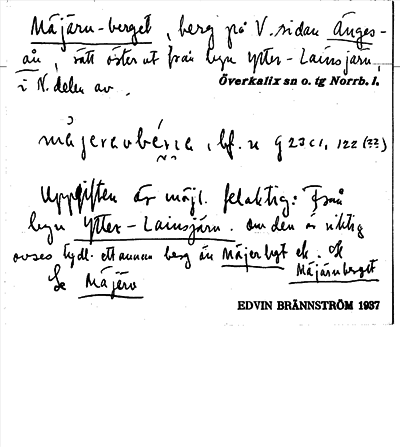 Måjärn-berget, berg på V. sidan Änges-
ån, rätt öster ut från byn Ytter-Lainsjärn,
i N. delen av
Överkalix sn o. tg Norrb. l.
bf. n
Uppgiften är möjl. felaktig: Från
byn Ytter-Lainsjärn. om den är riktig
avses tydl. ett annan berg än Måjerbyt ek. ek
Måjärnberget
Se Måjärv
EDVIN BRÄNNSTRÖM 1937